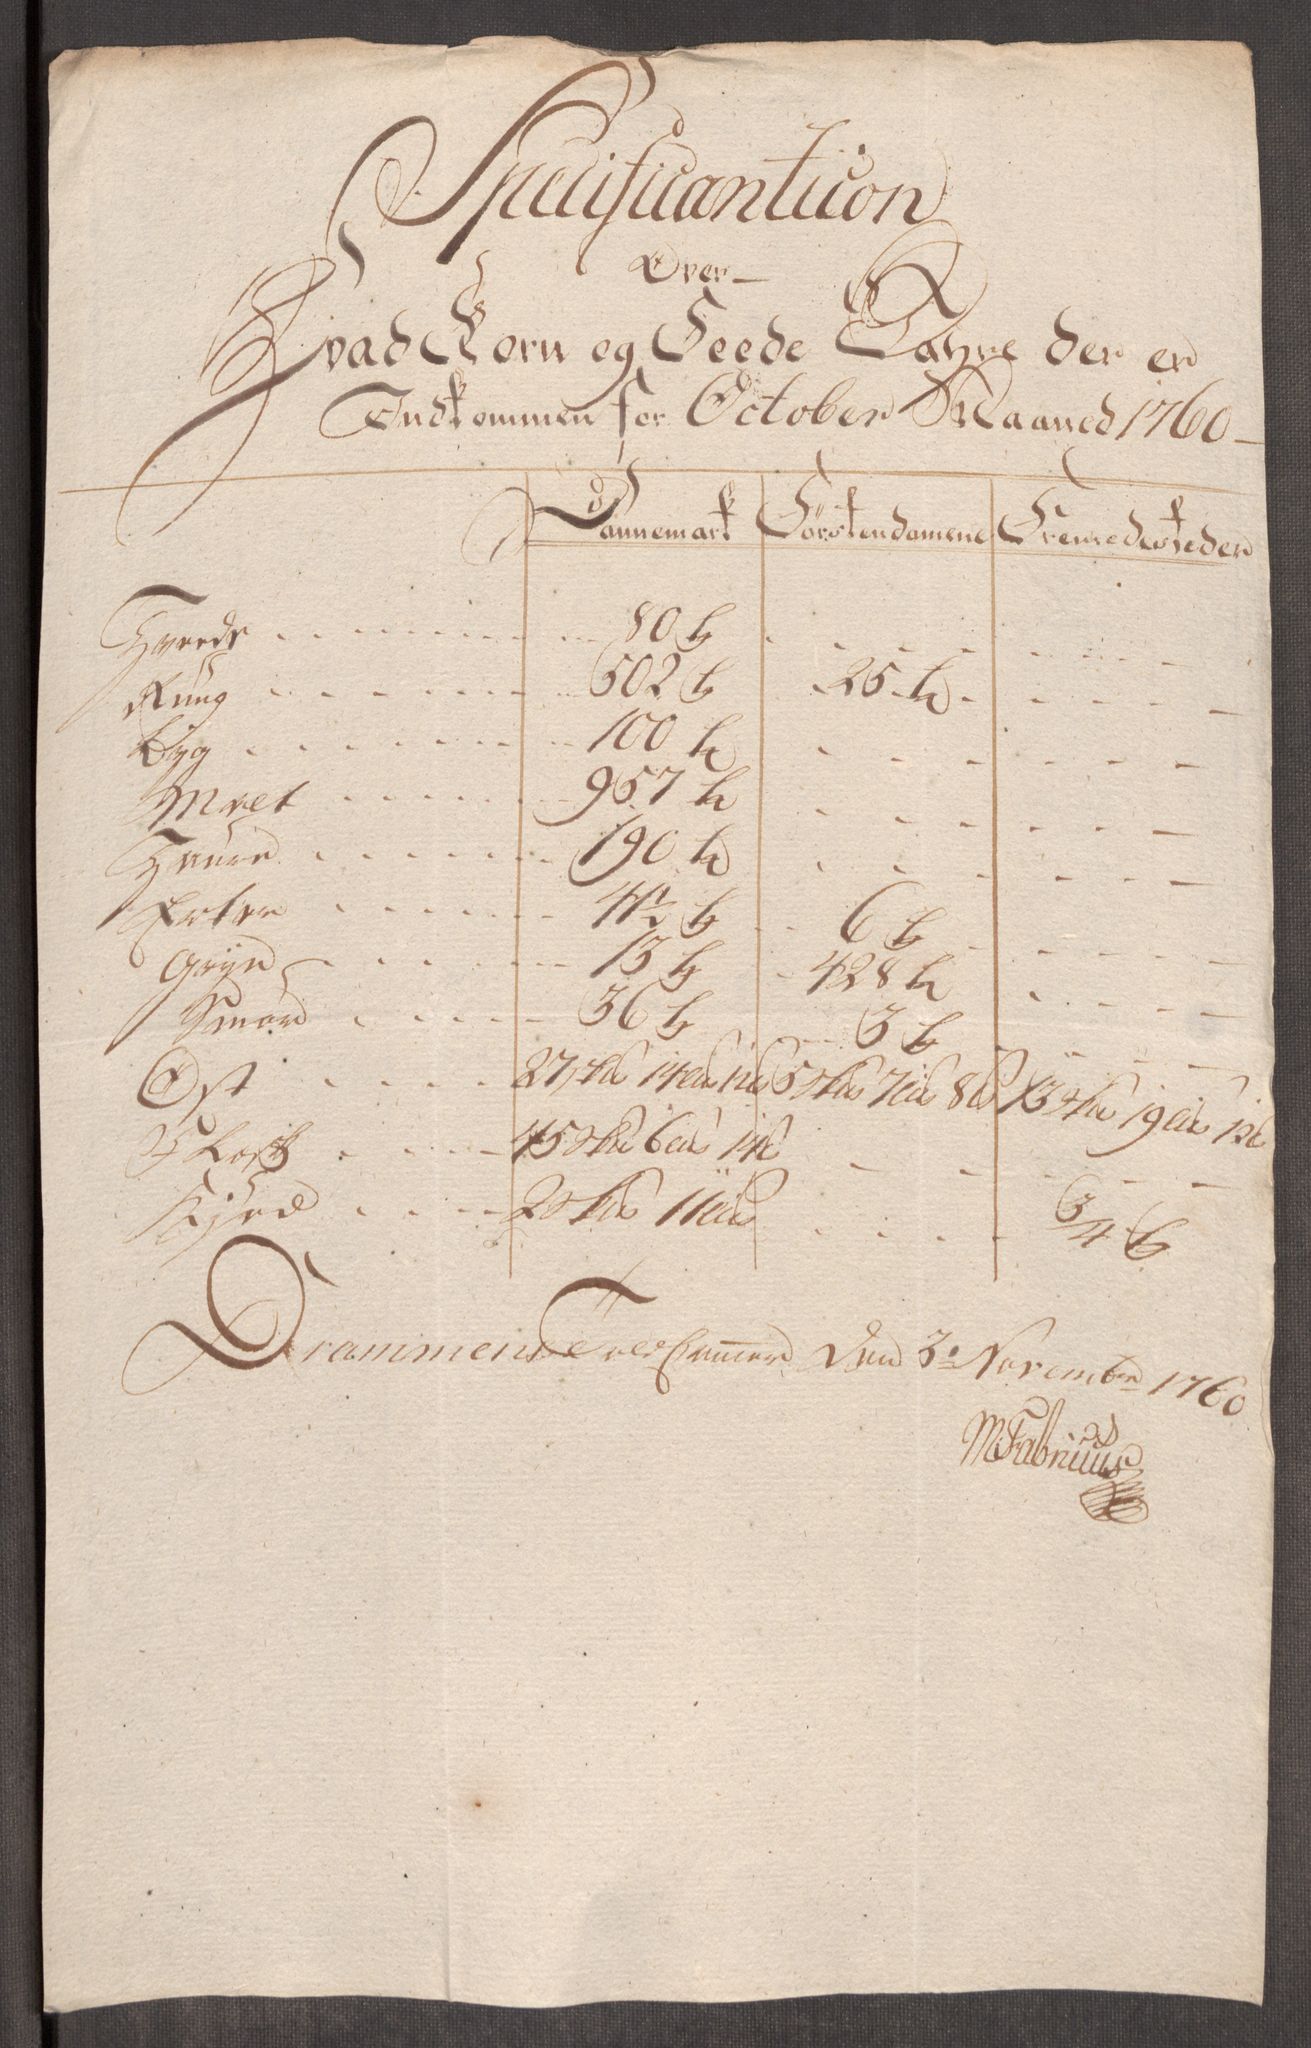 Specificantion
Over
Hvad Korn og Feede Vahre der er
Indkommen for October Maaned 1760
Dannemark Förstendomene Fremedesteder
Hvede 80 t
Rug 502 t 25 t
Byg 100 t
Malt 957 t
Havre 190 t
Erter 4 1/2 t 6 t
Gryn 13 t 428 t
Smör 36 t 3 t
Ost 27 sk℔ 14 l℔ 12 ℔ 5 sk℔ 7 l℔ 8 ℔ 13 sk℔ 19 l℔ 12 ℔
Flesk 45 sk℔ 6 l℔ 14 ℔
Kjød 2 sk℔ 11 l℔ 3/4 t
Drammens Told Cammer den 3. Novembr 1760
M Fabricius